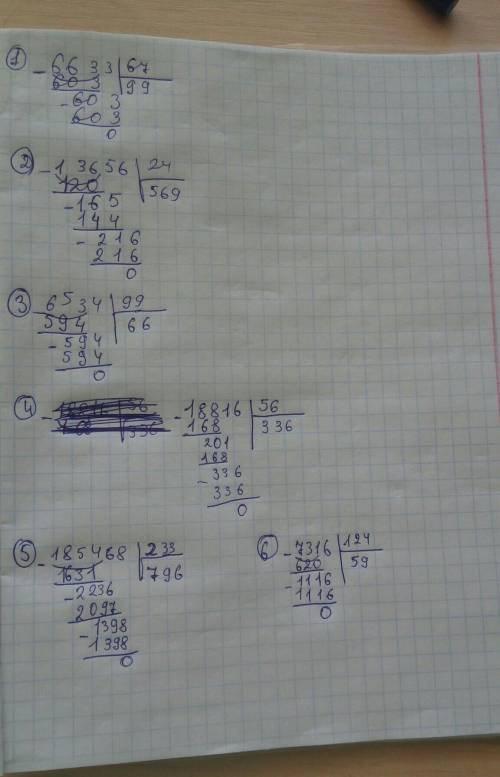 1 - 6633 67
603 99
- 603
603
0
2 - 13656 24
120 569
- 165
144
- 216
216
0
3 - 6534 99
594 66
- 594
594
0
4 - 18816 56
168 336
201
168
- 336
336
0
5 - 185468 233
1631 796
- 2236
2097
- 1398
1398
0
6 - 7316 124
620 59
- 1116
1116
0